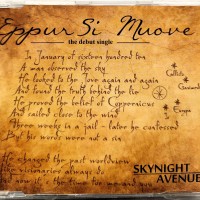 Eppur Si Muove
the debut single
In January of sixteen hundred ten
A man observed the sky
He looked to the Jove again and again
And found the truth behind the lie
He proved the belief of Coppernicus
And sailed close to the wind
Three weeks in a jail - later he confessed
But his words were not a sin
Callisto
Ganimede
Europa
Io
He changed the past worldview
like visionaries always do
And now it's the time for me and you
SKYNIGHT
AVENUE